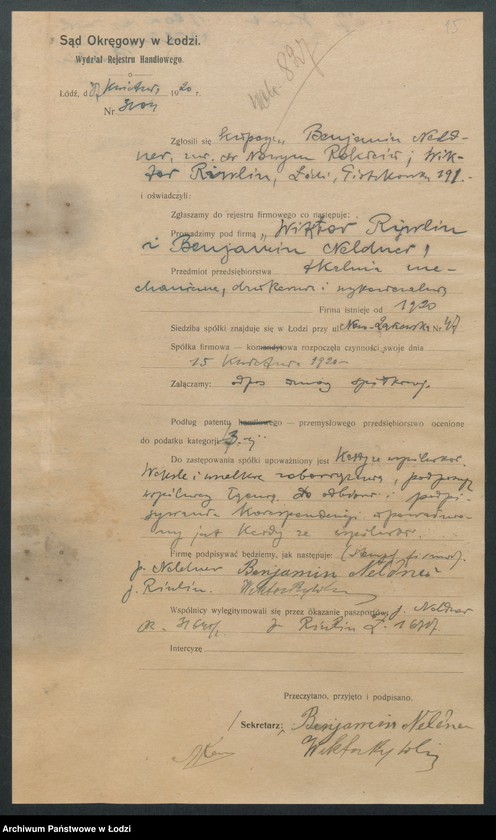 15
Sąd Okręgowy w Łodzi.
Wydział Rejestru Handlowego.
Łódź, d. 27 Kwietnia 1920 r.
Nr
827
Zgłosili się Benjamin Neld-
ner, w Nowym Rokiciu i Wik-
tor Rivlin, Łódź, Piotrkowska 191.
i oświadczyli:
Zgłaszamy do rejestru firmowego co następuje:
Prowadzimy pod firmą „Wiktor Rivlin
i Benjamin Neldner"
Przedmiot przedsiębiorstwa tkalnia me-
chaniczna, drukarnia i wykończalnia
Firma istnieje od 1920
Siedziba spółki znajduje się w Łodzi przy ul. Nowo-Łąkowska Nr. 4/7
Spółka firmowa — komandytowa rozpoczęła czynności swoje dnia
15 Kwietnia 1920
Załączamy: odpis umowy spółkowej.
Podług patentu handlowego — przemysłowego przedsiębiorstwo ocenione
do podatku kategorji 3-ej
Do zastępowania spółki upoważniony jest Każdy ze wspólników.
Weksle i wszelkie zobowiązania, podpisują
wspólnicy łącznie. Do odbioru i podpi-
sywania korespondencji upoważnio-
ny jest każdy ze wspólników.
Firmę podpisywać będziemy, jak następuje: (Stempel firmowy).
Neldner Benjamin Neldner
Rivlin.
Wspólnicy wylegitymowali się przez okazanie paszportów: Neldner
Rivlin
Intercyzę
Przeczytano, przyjęto i podpisano.
Sekretarz: Benjamin Neldner
Archiwum Państwowe w Łodzi